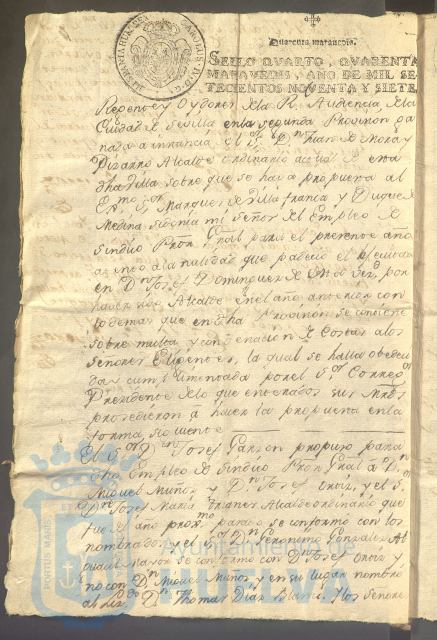 Quarenta maravedis.
SELLO QVARTO, QVARENTA
MARAVEDIS, AÑO DE MIL SE-
TECIENTOS NOVENTA Y SIETE.
Regente y Oydores de la Rl. Audiencia de la
Ciudad de Sevilla en la segunda Provision ga
nada a instancia del Sor. Dn. Juan de Mora y
Pizarro Alcalde ordinario actual de esta
dha Villa sobre que se haga propuesta al
Exmo. Sor. Marques de Villafranca y Duque de
Medina Sidonia mi Señor del Empleo de
Sindico Pror. Gral para el presente año
atento a la nulidad que padecio el
en Dn. Josef Dominguez por
haver sido Alcalde en el año anterior con
lo demas que en dha Provision se contiene
sobre multa y condenacion de Costas a los
Señores la qual se halla obede
cida y cumplimentada por el Sor. Correxor.
Presidente de lo que enterados sus Mrds
procedieron a hacer la propuesta en la
forma siguiente
El Sor. Dn. Josef Garzon propuso para
dho Empleo de Sindico Pror. Gral a Dn.
Miguel Muñoz y Dn. Josef Ortiz, y el Sr.
Dn. Josef Maria Alcalde ordinario que
fue el año proxmo. pasado se conformo con los
nombrados, y el Sor. Dn. Geronimo Gonzalez Al
guacil mayor se conformo con Dn. Josef Ortiz y
no con Dn. Miguel Muñoz y en su lugar nombró
al Lizdo. Dn. Thomas Diaz Blanco. Y los Señores
PORTUS MARIS
Ayuntamiento de
HUELVA